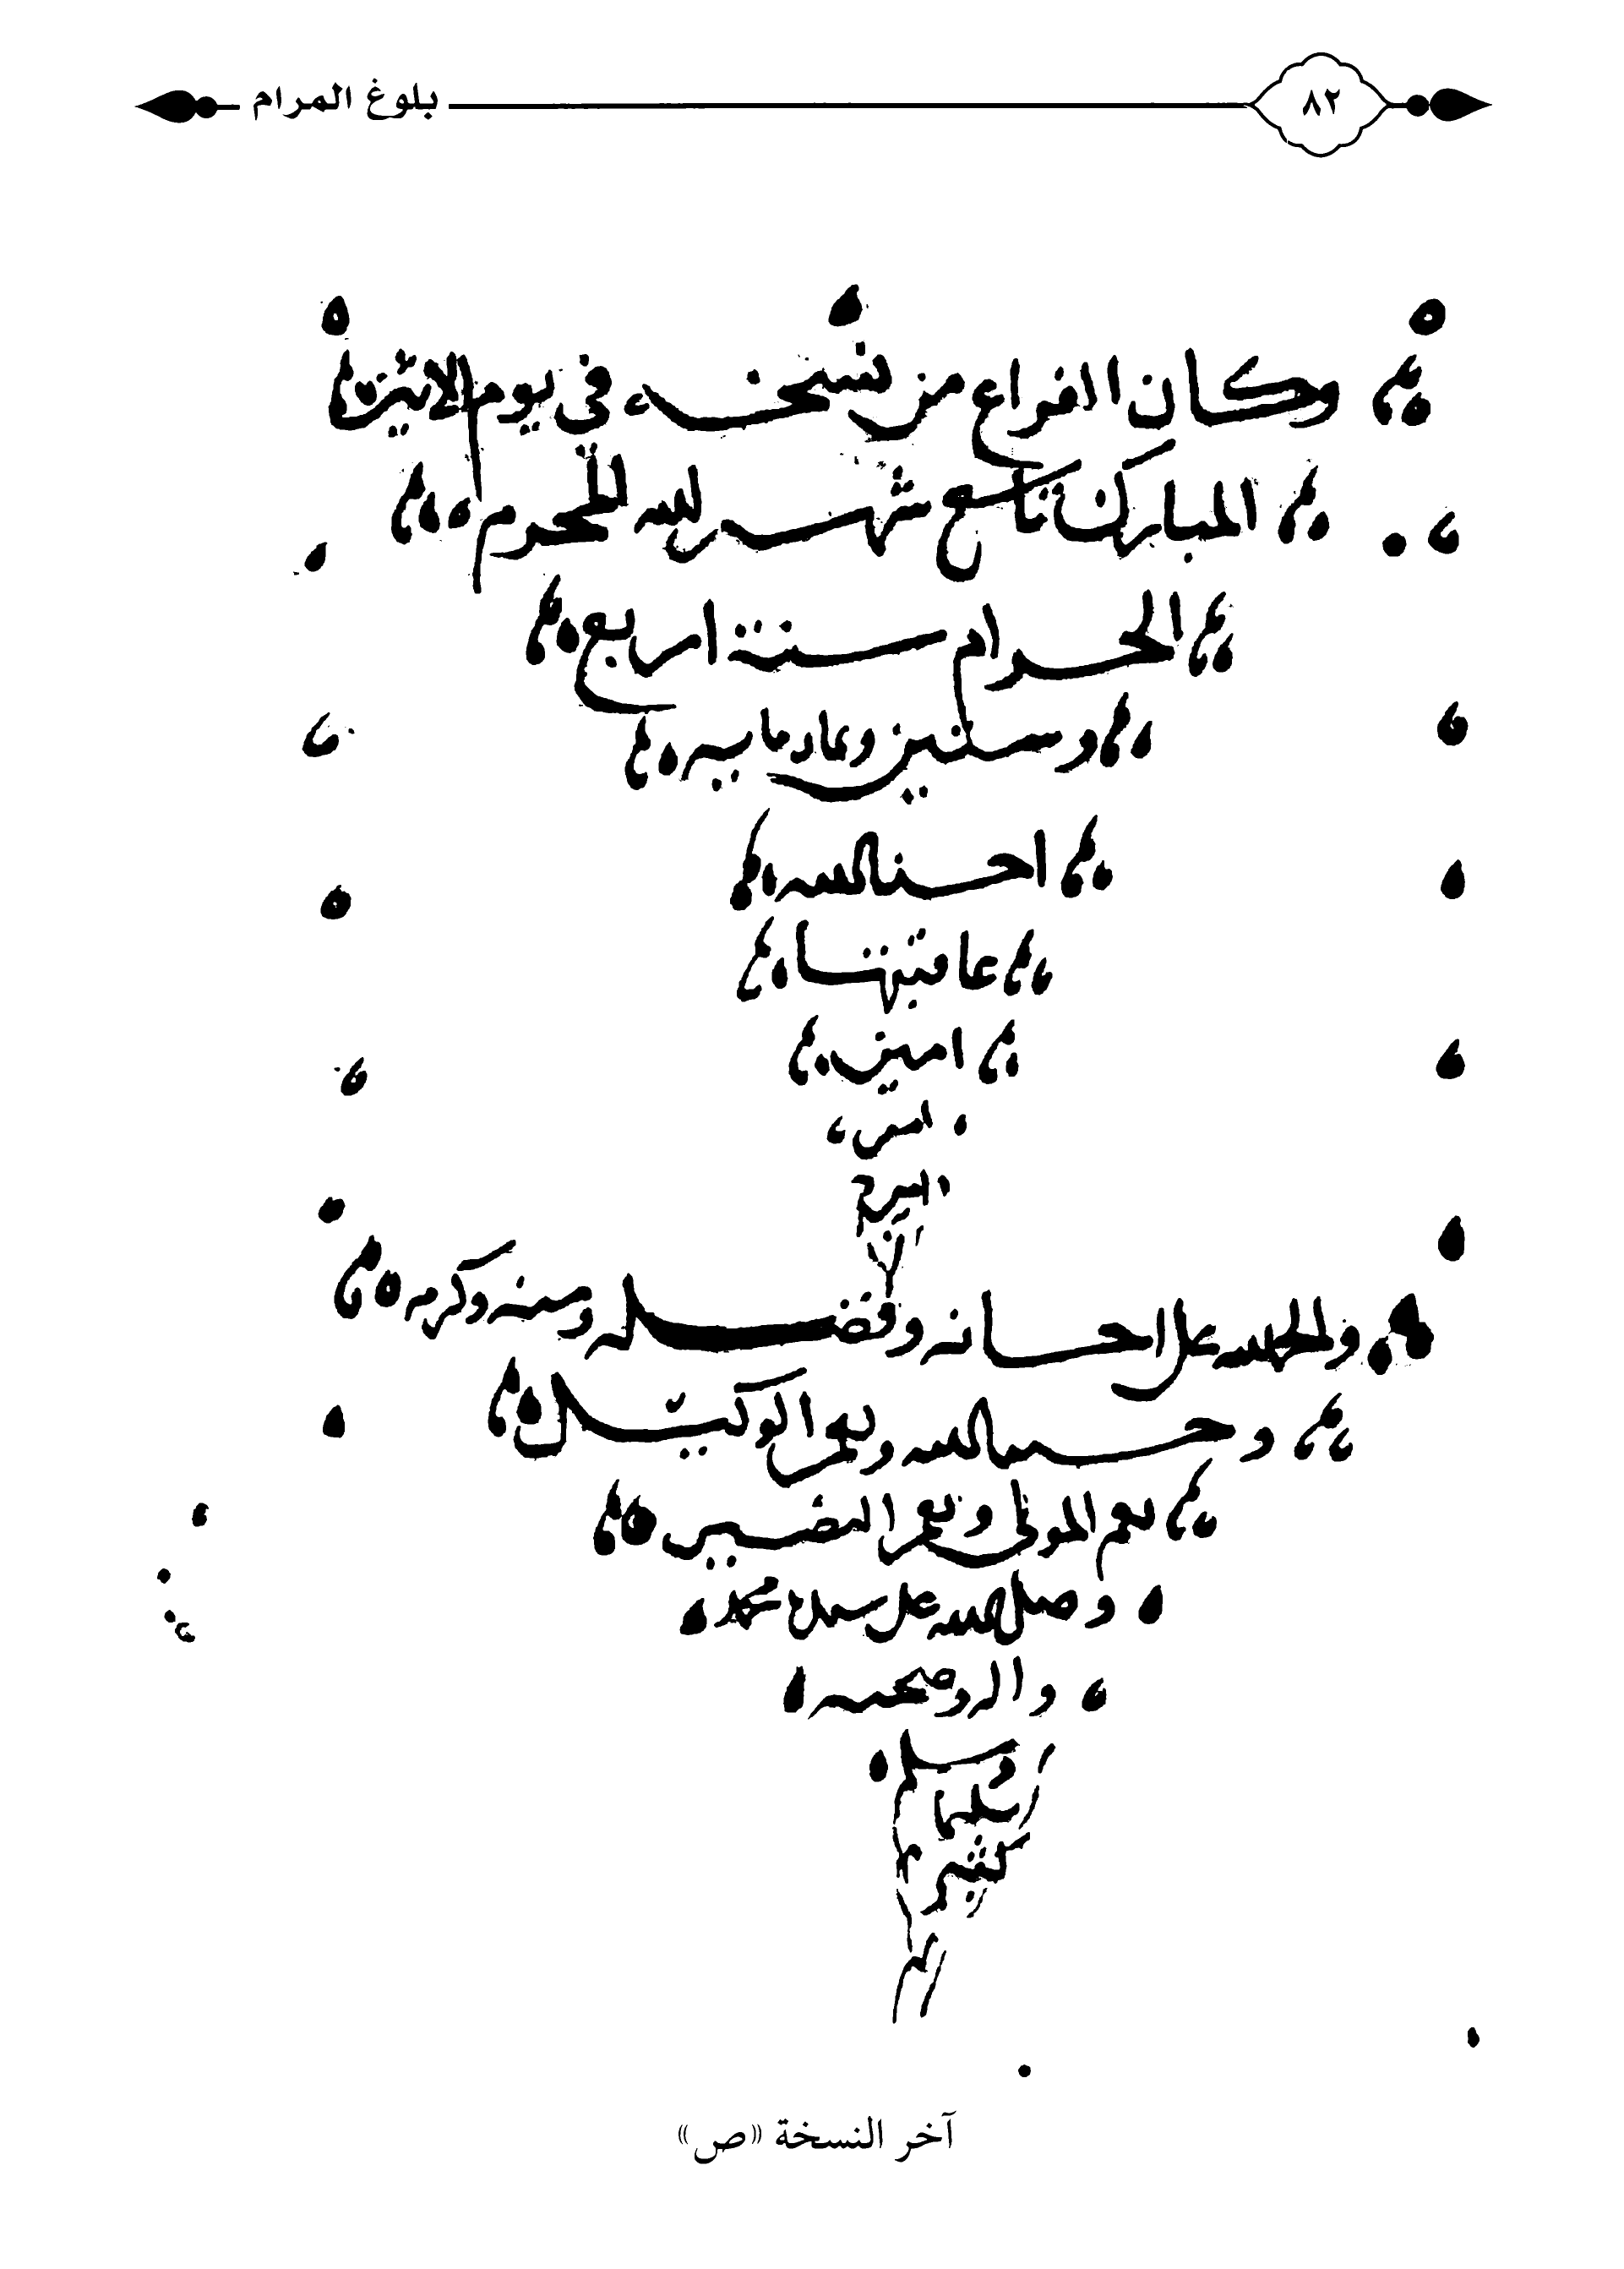 ٨٢ بلوغ المرام
وكان الفراغ من نسخه في يوم الاثنين
المبارك تاسع شهر الله المحرم
الحرام سنة اربع
وستين وثمانمايه
احسن الله
عاقبتها
امين
امين
امين
والحمد لله على احسانه وفضله ومنه وكرمه
وحسبنا الله ونعم الوكيل
نعم المولى ونعم النصير
وصلى الله على سيدنا محمد
واله وصحبه
وسلم
تسليما
كثيرا
آخر النسخة «ص»